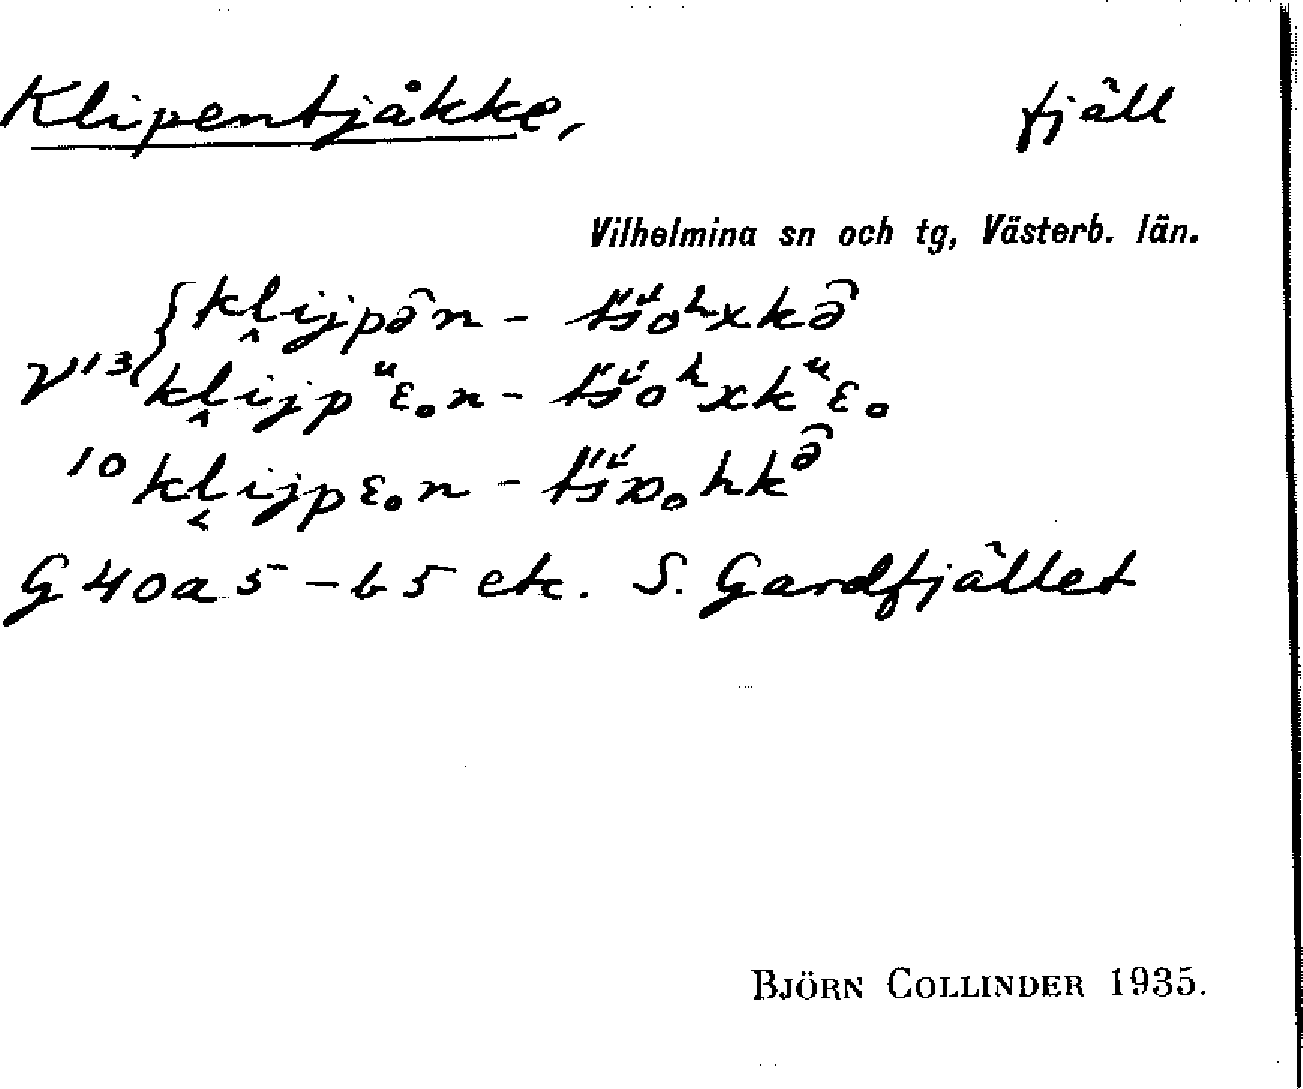 Klipentjåkke, fjäll
Vilhelmina sn och tg, Västerb. län.
{kḽijpə̑n - tś̌oʰxkə̑
V13 kḽijpᵘɛₒn - tś̌oʰxkᵘɛₒ
10 kl̬ijpɛₒn - tś̌ɒₒhkə̑
G 40a5 - b5 etc. S. Gardfjället
BJÖRN COLLINDER 1935.